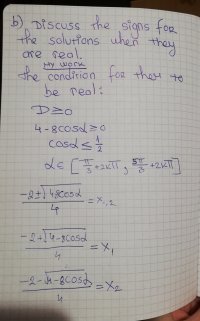 b) Discuss the signs for
the solutions when they
are real.
MY WORK
the condition for them to
be real:
D≥0
4-8cosα≥0
cosα≤1/2
α∈[-π/3+2kπ, 5π/3+2kπ]
-2±√4-8cosα/4 = x₁,₂
-2+√4-8cosα/4 = x₁
-2-√4-8cosα/4 = x₂